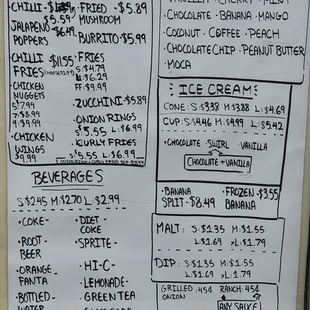 • CHILLI -
$5.59
JALAPENO $6.49
POPPERS
• CHILLI $11.55
FRIES
• CHICKEN
NUGGETS
5 $7.99
7 $8.99
9 $9.99
• CHICKEN
WINGS
$9.99
• FRIED - $5.89
MUSHROOM
BURRITO $5.99
• FRIES
S - $4.79
L $6.29
FF $9.99
• ZUCCHINI $5.89
• ONION RINGS
S $5.55 L $6.99
• CURLY FRIES
S $5.55 L $6.99
• CHOCOLATE • BANANA • MANGO
• COCONUT • COFFEE • PEACH
• CHOCOLATE CHIP • PEANUT BUTTER
• MOCA
ICE CREAM
CONE: S: $3.38 M: $3.88 L: $4.69
CUP: S: $4.46 M: $4.99 L: $5.42
• CHOCOLATE SWIRL • VANILLA
CHOCOLATE + VANILLA
• BANANA
SPLIT - $8.49
• FROZEN $3.55
BANANA
MALT: S: $1.35 M: $1.55
L: $1.69 XL: $1.79
DIP: S: $1.35 M: $1.55
L: $1.69 XL: $1.79
GRILLED .45¢
ONION
RANCH .45¢
ANY SAUCE
BEVERAGES
S $2.45 M $2.70 L $2.99
• COKE -
• ROOT -
BEER
• ORANGE -
FANTA
• BOTTLED -
WATER
• DIET -
COKE
• SPRITE -
• HI-C -
• LEMONADE -
• GREEN TEA